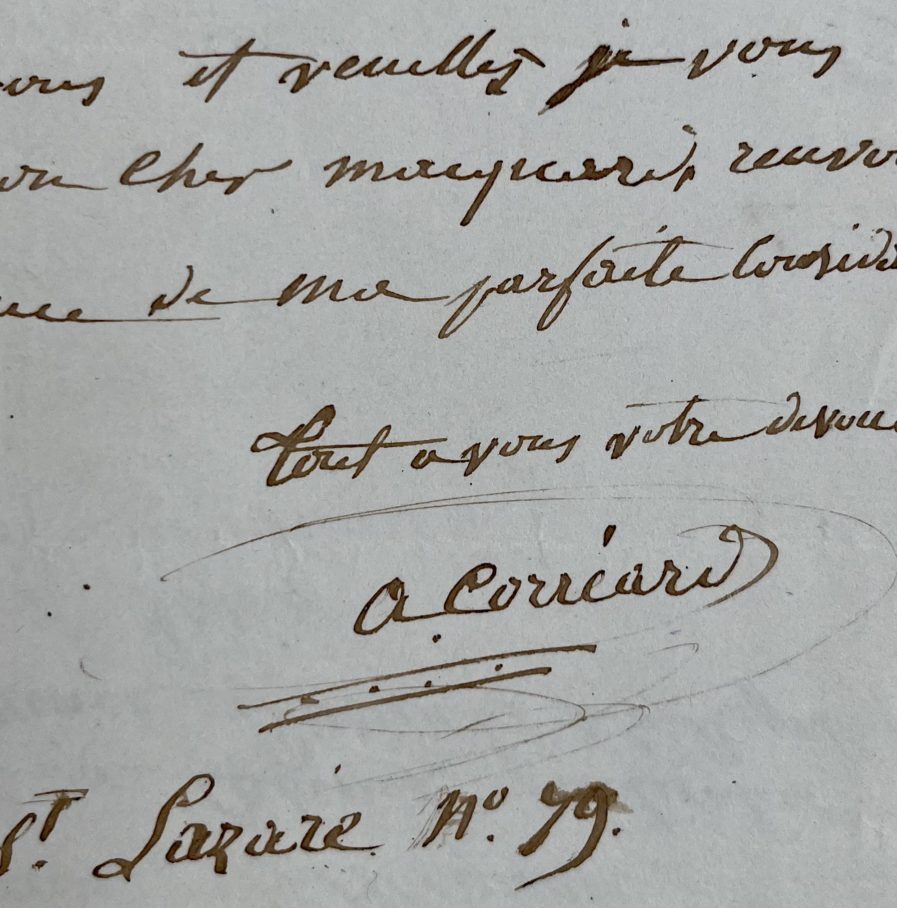 vous et veuillez je vous
mon cher maquard, recevo
nce de ma parfaite Considé
tout a vous votre dévoué
A Corréard
St. Lazare No. 79.